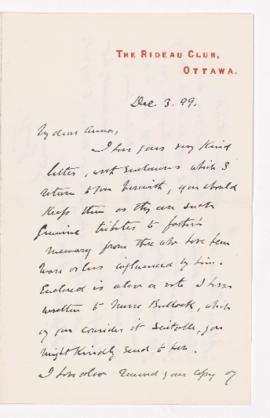 THE RIDEAU CLUB,
OTTAWA.
Dec. 3. 99.
My dear Anna,
I have your very kind
letter, with enclosures which I
return to you herewith, you should
keep them as they are such
genuine tributes to foster's
memory from those who have been
more or less influenced by him.
Enclosed is also a note I have
written to Nurse Bullock, which
if you consider it suitable, you
might kindly send to her.
I have also received your copy of